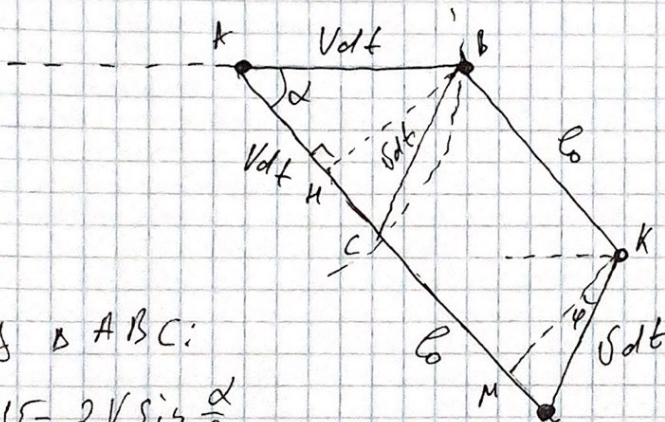 A Vdt B
α
Vdt
H
υdt
ℓ₀
C
K
ℓ₀
φ
υdt
△ ABC:
M
υ = 2V Sin α